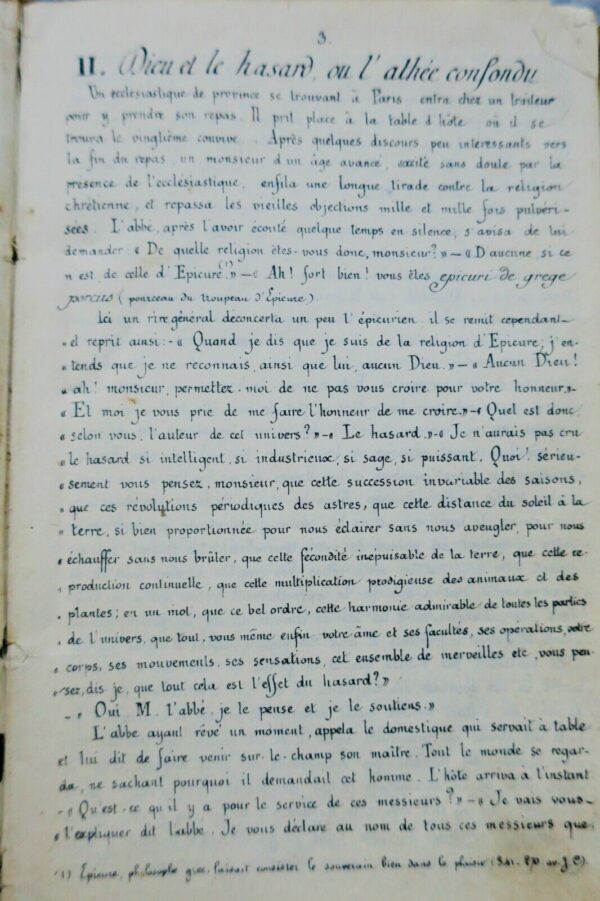 3.
II. Dieu et le hasard, ou l'athée confondu
Un ecclésiastique de province se trouvant à Paris entra chez un traiteur
pour y prendre son repas. Il prit place à la table d'hôte où il se
trouva le vingtième convive. Après quelques discours peu intéressants vers
la fin du repas, un monsieur d'un âge avancé, excité sans doute par la
présence de l'ecclésiastique, enfila une longue tirade contre la religion
chrétienne, et repassa les vieilles objections mille et mille fois pulvéri-
sées. L'abbé, après l'avoir écouté quelque temps en silence, s'avisa de lui
demander: « De quelle religion êtes-vous donc, monsieur? » — « D'aucune, si ce
n'est de celle d'Epicure (1). » — « Ah! fort bien! vous êtes epicuri de grege
porcus (pourceau du troupeau d'Epicure).
Ici un rire général déconcerta un peu l'épicurien. il se remit cependant
et reprit ainsi: - « Quand je dis que je suis de la religion d'Epicure, j'en-
« tends que je ne reconnais, ainsi que lui, aucun Dieu. » — « Aucun Dieu!
« ah! monsieur, permettez-moi de ne pas vous croire pour votre honneur. » -
« Et moi je vous prie de me faire l'honneur de me croire. » - « Quel est donc,
« selon vous, l'auteur de cet univers? » - « Le hasard. » - « Je n'aurais pas cru
« le hasard si intelligent, si industrieux, si sage, si puissant. Quoi! sérieu-
« sement vous pensez, monsieur, que cette succession invariable des saisons,
« que ces révolutions périodiques des astres, que cette distance du soleil à la
« terre, si bien proportionnée pour nous éclairer sans nous aveugler, pour nous
« échauffer sans nous brûler, que cette fécondité inépuisable de la terre, que cette re-
« production continuelle, que cette multiplication prodigieuse des animaux et des
« plantes; en un mot, que ce bel ordre, cette harmonie admirable de toutes les parties
« de l'univers, que tout, vous même enfin votre âme et ses facultés, ses opérations, votre
« corps, ses mouvements, ses sensations, cet ensemble de merveilles etc, vous pen-
« sez, dis je, que tout cela est l'effet du hasard? »
- « Oui M. l'abbé, je le pense et je le soutiens. »
L'abbé ayant rêvé un moment, appela le domestique qui servait à table
et lui dit de faire venir sur-le-champ son maître. Tout le monde se regar-
da, ne sachant pourquoi il demandait cet homme. L'hôte arriva à l'instant
- « Qu'est-ce qu'il y a pour le service de ces messieurs? » - « Je vais vous
« l'expliquer dit l'abbé. Je vous déclare au nom de tous ces messieurs que
(1) Epicure, philosophe grec, faisait consister le souverain bien dans le plaisir av. J.C).